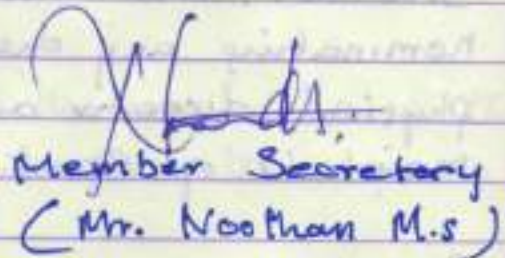 Member Secretary
(Mr. Noothan M.S)